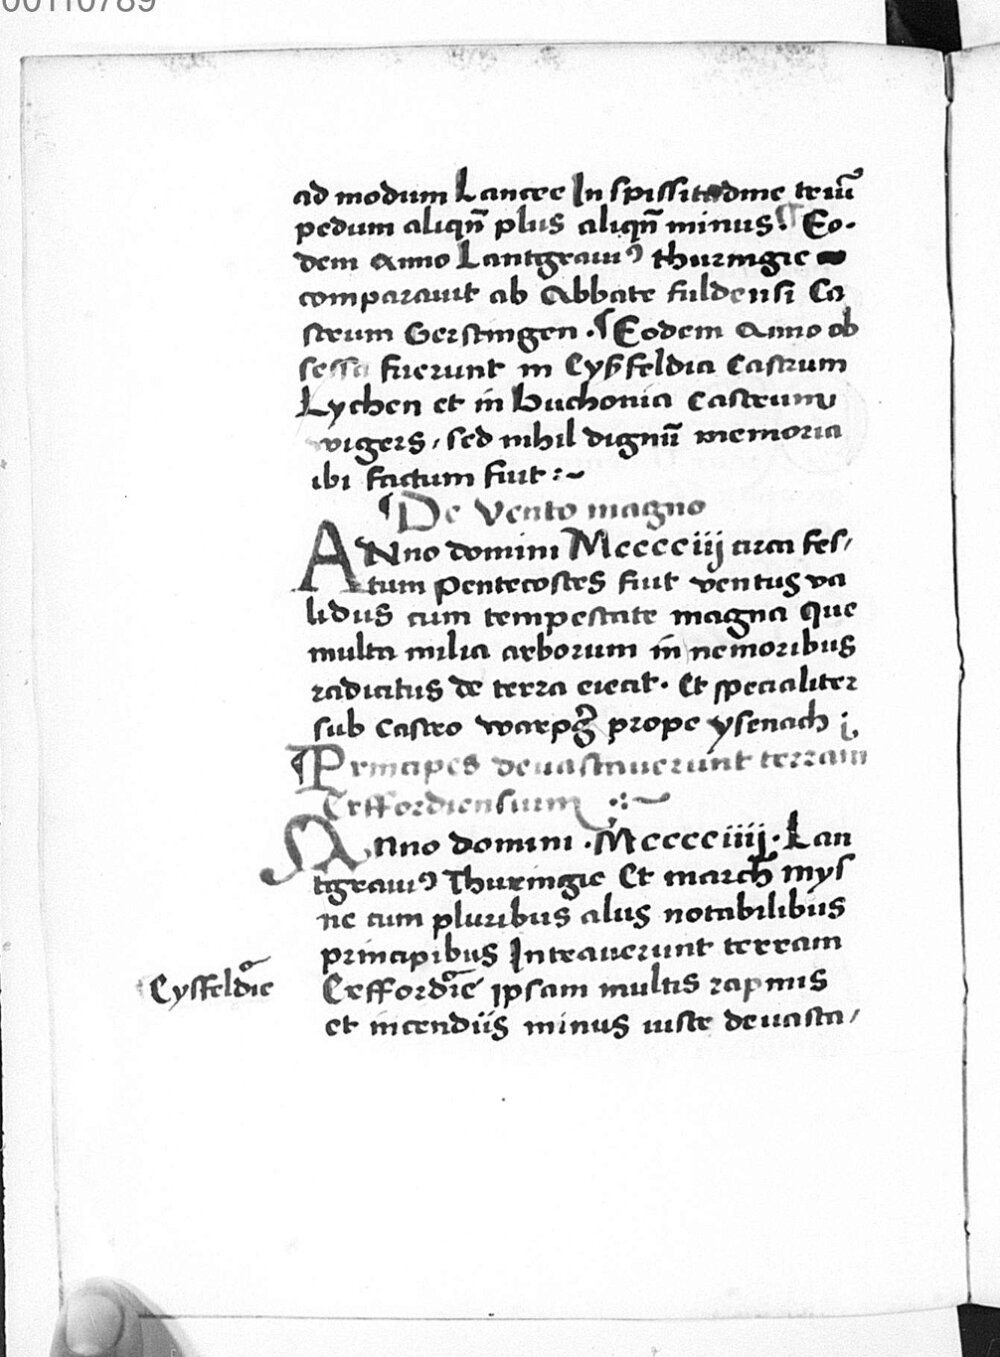 00110789
ad modum Lancee In spissitudine triū
pedum aliqn̄ plus aliqn̄ minus ¶ Eo-
dem Anno Lantgrauiꝰ thuringie
comparauit ab Abbate fuldensi Ca
strum Gerstingen · ¶ Eodem Anno ob
sessa fuerunt in Eyßfeldia Castrum
Lychen et in buchonia castrum
vigers, sed nihil dignū memoria
ibi factum fuit :~
¶ De Vento magno
ANno domini Mcccciij circa fes/
tum pentecostes fuit ventus va
lidus cum tempestate magna que
multa milia arborum in nemoribus
radicitus de terra eiecit · Et specialiter
sub castro warpg̃ prope ysenach
¶ Principes deuastauerunt terram
Erffordiensium :~
Anno domini · Mcccciiij · Lan
tgrauiꝰ Thuringie Et march mys
ne cum pluribus aliis notabilibus
principibus Intrauerunt terram
Eysfeldie
Erffordie ipsam multis rapinis
et incendiis minus iuste deuasta/